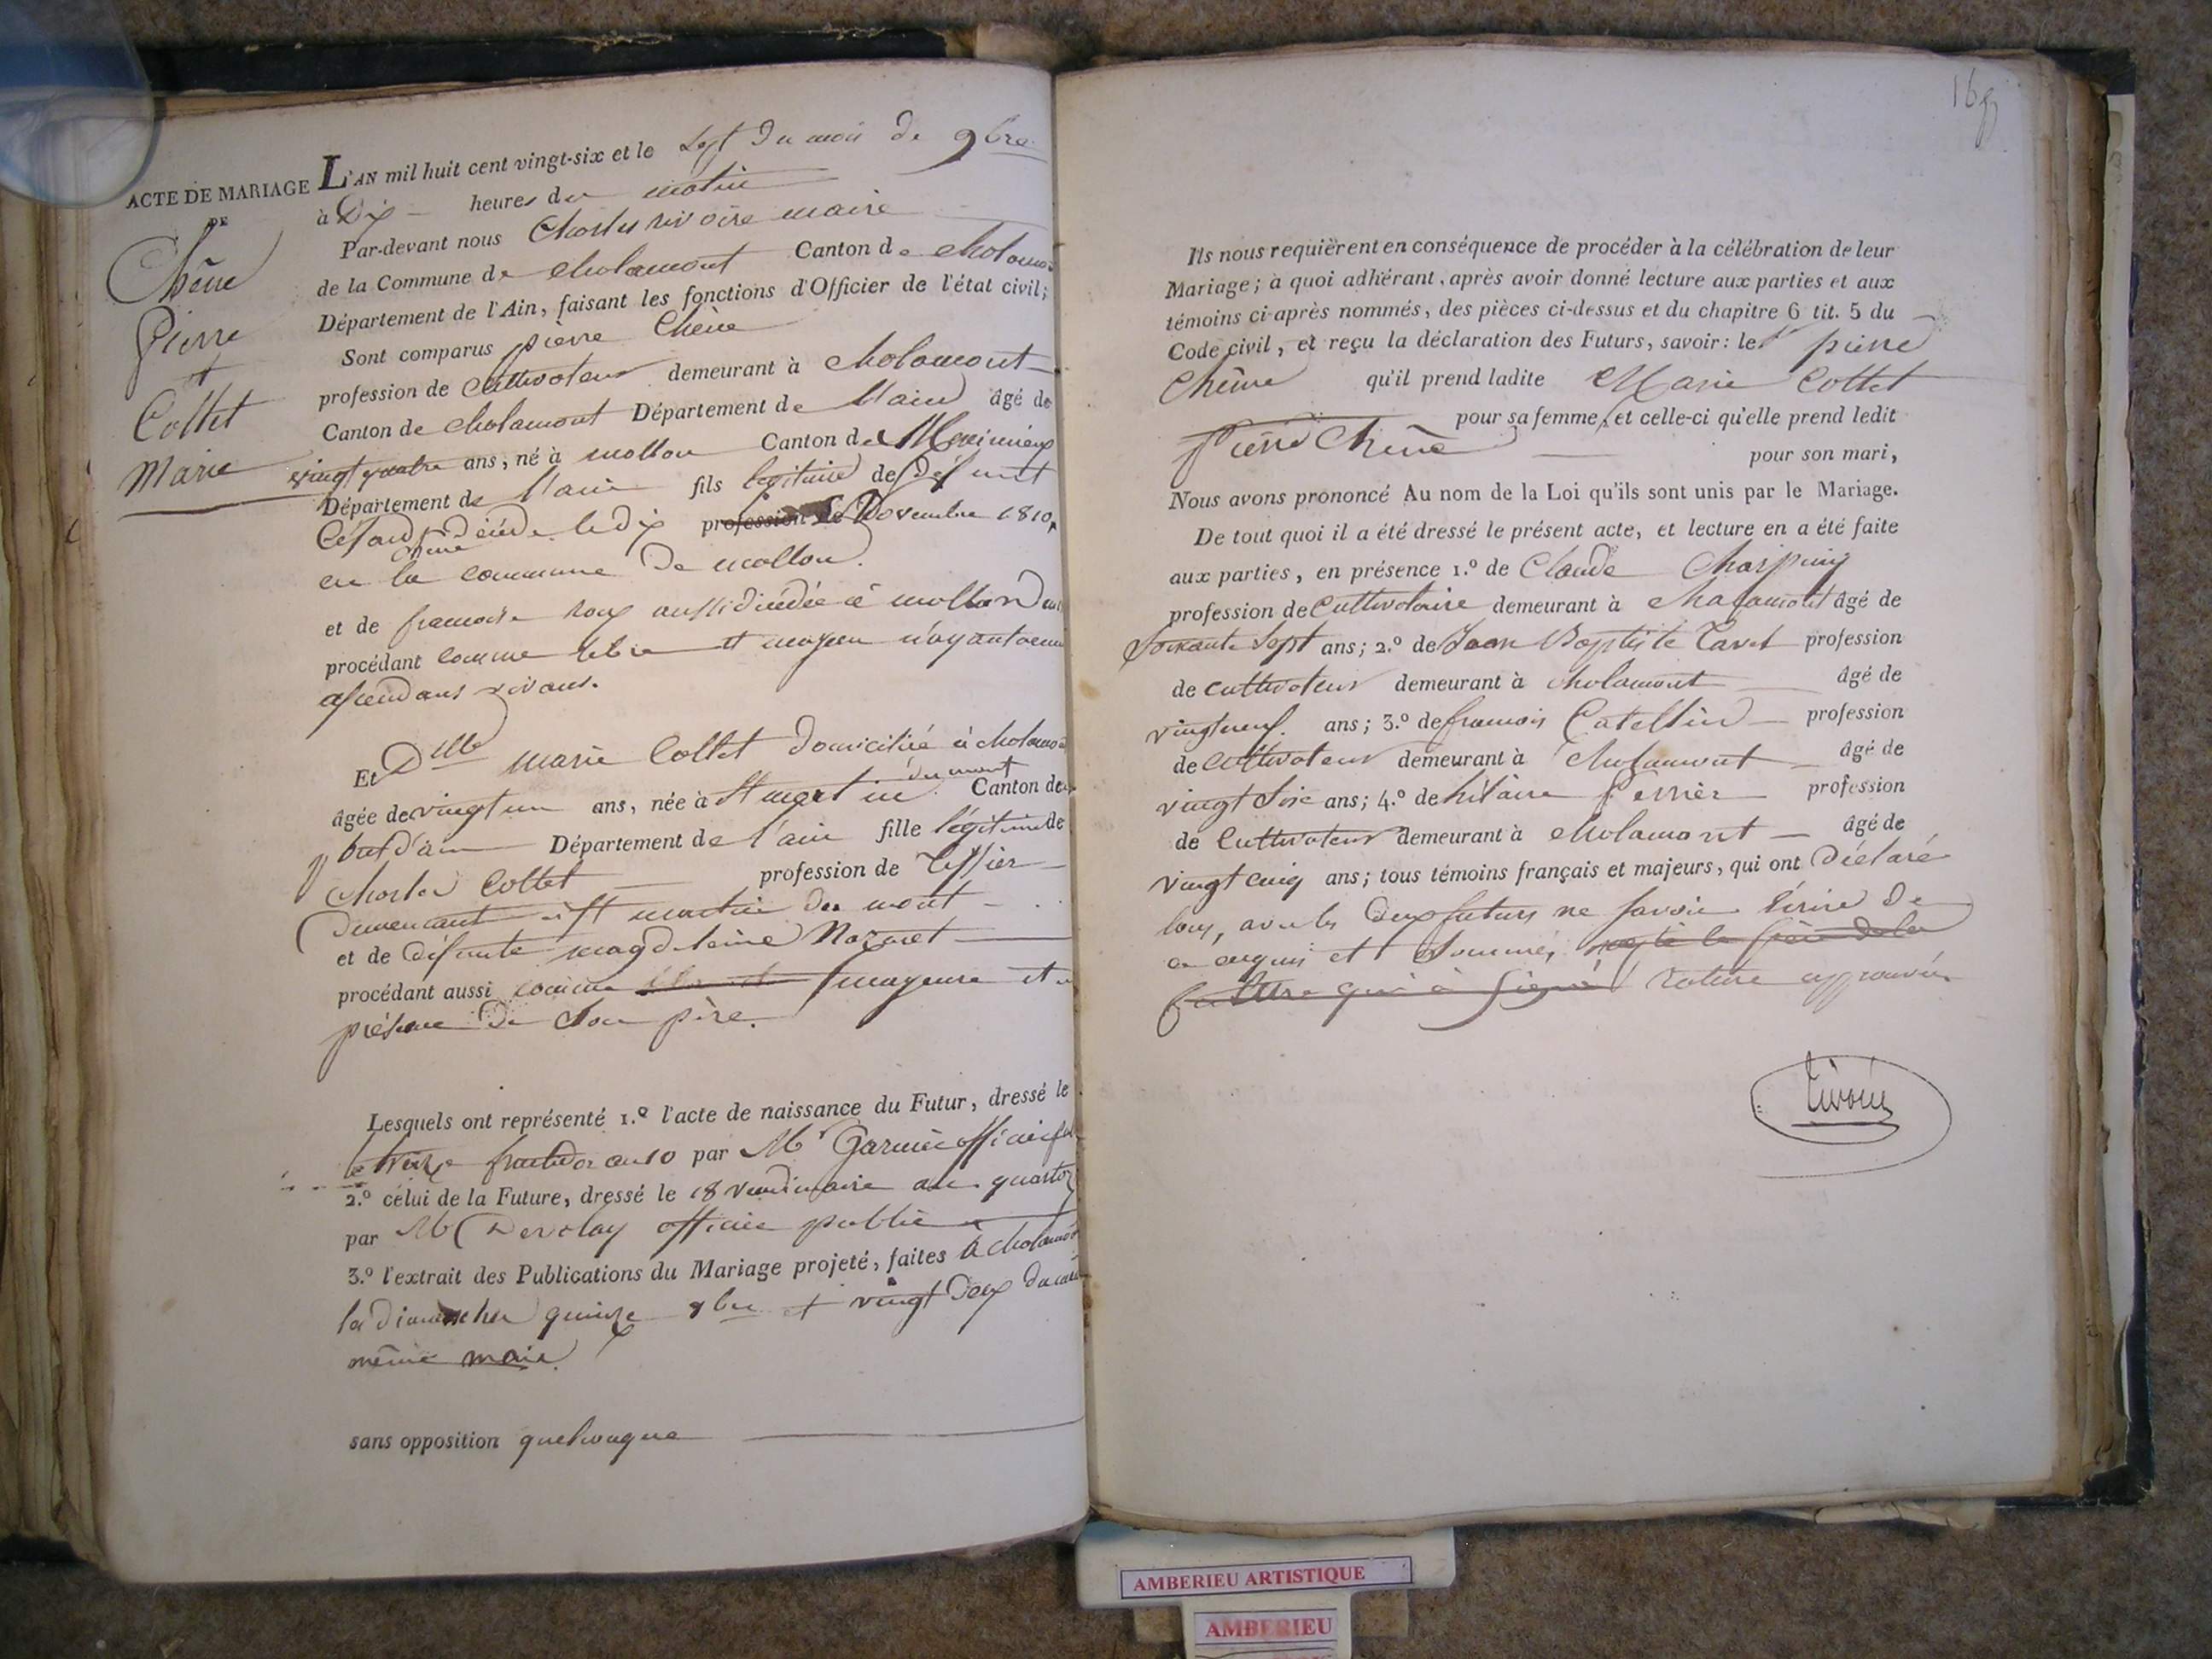 ACTE DE MARIAGE
DE
Chêne
Pierre
et
Collet
Marie
L'AN mil huit cent vingt-six et le Sept du mois de 9bre
à Dix heures du matin
Par-devant nous Charles rivoire maire
de la Commune de Chalamont Canton de Chalamont
Département de l'Ain, faisant les fonctions d'Officier de l'état civil;
Sont comparus pierre Chêne
profession de Cultivateur demeurant à Chalamont
Canton de Chalamont Département de l'ain âgé de
vingt quatre ans, né à mollon Canton de Meximieux
Département de l'ain fils légitime de Défunt
Chêne décédé le dix profession Le Novembre 1810,
en la commune de mollon.
et de francoise roux aussi décédée à mollon
procédant comme libre et majeur n'ayant aucun
ascendans vivans.
Et Dlle Marie Collet domiciliée à Chalamont
du mont
âgée de vingt un ans, née à St martin Canton de
pont d'ain Département de l'ain fille légitime de
Charles Collet profession de Tissier
Demeurant à St martin du mont
et de défunte magdeleine Nazaret
procédant aussi comme majeure et en
présence de Son père.
Lesquels ont représenté 1.º l'acte de naissance du Futur, dressé le
treize fructidor an 10 par Mr Garnier officier
2.º celui de la Future, dressé le 18 vendémiaire an quatorze
par Mr Dervolay officier public
3.º l'extrait des Publications du Mariage projeté, faites à Chalamont
les dimanches quinze 8bre et vingt deux du
même mois.
sans opposition quelconque
Ils nous requièrent en conséquence de procéder à la célébration de leur
Mariage; à quoi adhérant, après avoir donné lecture aux parties et aux
témoins ci-après nommés, des pièces ci-dessus et du chapitre 6 tit. 5 du
Code civil, et reçu la déclaration des Futurs, savoir: le pierre
Chêne qu'il prend ladite Marie Collet
pour sa femme, et celle-ci qu'elle prend ledit
Pierre Chêne pour son mari,
Nous avons prononcé Au nom de la Loi qu'ils sont unis par le Mariage.
De tout quoi il a été dressé le présent acte, et lecture en a été faite
aux parties, en présence 1.º de Claude Charpiny
profession de Cultivataire demeurant à Chalamont âgé de
Soixante Sept ans; 2.º de Jean Baptiste Tavel profession
de cultivateur demeurant à Chalamont âgé de
vingt neuf. ans; 3.º de francois Catellin profession
de Cultivateur demeurant à Chalamont âgé de
vingt Six ans; 4.º de hilaire Perrier profession
de Cultivateur demeurant à Chalamont âgé de
vingt cinq ans; tous témoins français et majeurs, qui ont Déclaré
tous, avec les deux futurs ne Savoir Ecrire De
ce enquis et Sommés, excepté le père de la
future qui à Signé rature approuvée
rivoire
AMBERIEU ARTISTIQUE
AMBERIEU